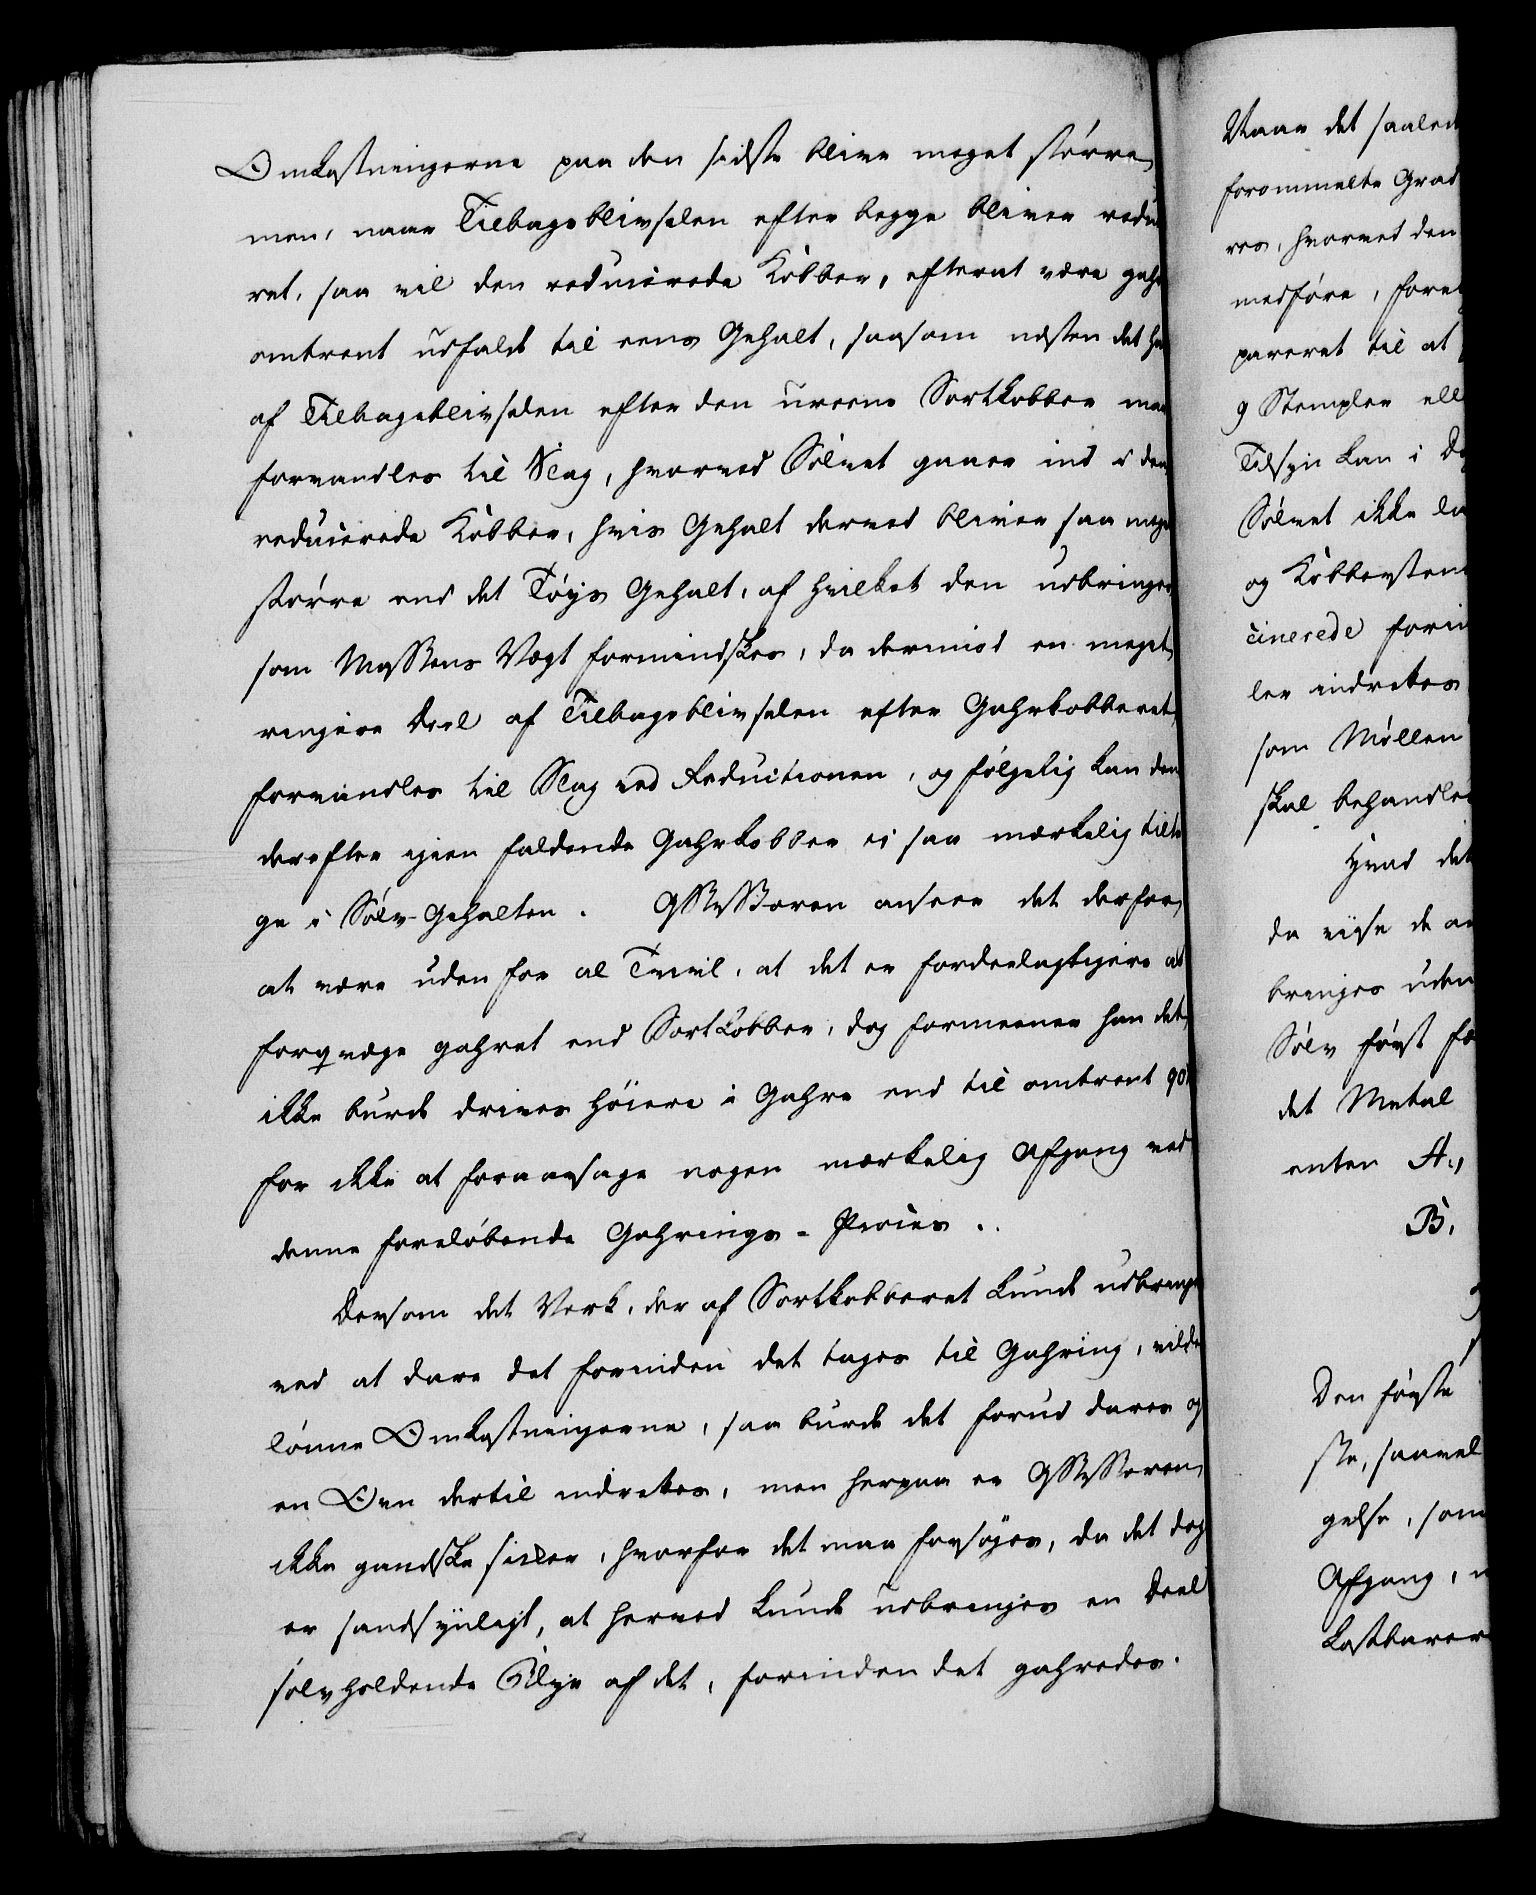 Omkostningerne paa den sidste blive meget større,
men, naar Tilbageblivselen efter begge bliver redu
ret, saa vil den reducerede Kobber, efterat være gahr
omtrent udfaldt til eens Gehalt, saasom næsten det he
af Tilbageblivselen efter den ureene Sortkobber maa
forvandles til Slag, hvorved Sølvet gaaer ind i den
reducerede Kobber, hvis Gehalt derved bliver saa meget
større end det Tøys Gehalt, af hvilket den udbringes
som Massens Vægt formindskes, da derimod en meget
ringere Deel af Tilbageblivselen efter Gahrkobberet
forvandles til Slag ved Reductionen, og følgelig kan den
derefter igien faldende Gahrkobber ei saa mærkelig tilta
ge i Sølv-Gehalten. Assessoren anseer det derfor
at være uden for al Tvivl, at det er fordeelagtigere at
forqvæge gahret end Sortkobber, dog formeener han det
ikke burde drives høiere i Gahre end til omtrent 90
for ikke at foraarsage nogen mærkelig Afgang ved
denne foreløbende Gahrings-Proces.
Dersom det Verk, der af Sortkobberet kunde udbringes
ved at dare det forinden det tages til Gahring, vilde
lønne Omkostningerne, saa burde det forud dares og
en Oven dertil indrettes, men herpaa er Assessoren
ikke gandske sikker, hvorfor det maa forsøges, da det dog
er sandsynligt, at herved kunde udbringes en Deel
sølvholdende Blye af det, forinden det gahredes.
Naar det saaled
forommelte Grad
res, hvorved den
medføre, fore
pareret til at
9 Stempler ell
Tilsyn kan i D
Sølvet ikke la
og Kobbersten
cinerede forin
ler indrettes
som Møllen
skal behandles
Hvad det
da viise de a
bringes uden
Sølv først fo
det Metal
enten A.,
B.
Den første
ste, saavel
gelse, som
Afgang,
kostbarere